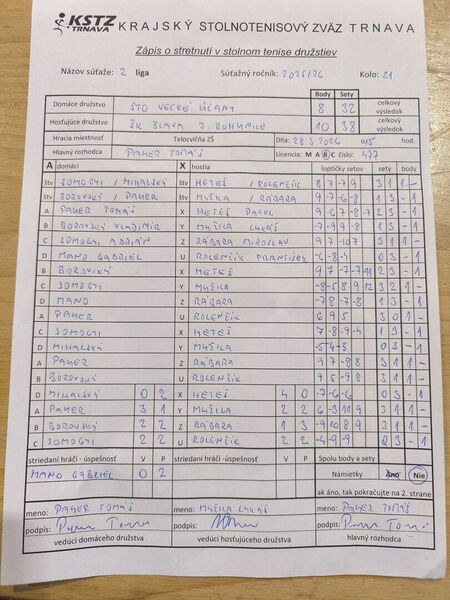 KSTZ TRNAVA KRAJSKÝ STOLNOTENISOVÝ ZVÄZ TRNAVA
Zápis o stretnutí v stolnom tenise družstiev
Názov súťaže: 2 liga Súťažný ročník: 2025/26 Kolo: 21
Body Sety
Domáce družstvo STO VEĽKÉ ÚĽANY 8 32 celkový výsledok
Hosťujúce družstvo ŠK BLAVA J. BOHUNICE 10 38 celkový výsledok
Hracia miestnosť Telocvičňa ZŠ Dňa: 28.3.2026 hod.
Hlavný rozhodca PAYER TOMÁŠ Licencia: M A B C číslo: 437
A domáci X hostia loptičky setov sety body
štv SOMOGYI / MIHALSKÝ štv HETEŠ / ROLENČÍK 8 7 -7 9 3 1 1 -
štv BOROVSKÝ / PAYER štv MYŠILA / RÁBARA 9 -7 -6 -8 1 3 - 1
A PAYER TOMÁŠ X HETEŠ PAVOL 9 -6 7 -8 -7 2 3 - 1
B BOROVSKÝ VLADIMÍR Y MYŠILA LUKÁŠ -7 -9 9 -8 1 3 - 1
C SOMOGYI ADRIÁN Z RÁBARA MIROSLAV 9 7 -10 7 3 1 1 -
D MANO GABRIEL U ROLENČÍK FRANTIŠEK -6 -8 -4 0 3 - 1
B BOROVSKÝ X HETEŠ 9 7 -7 -7 -11 2 3 - 1
C SOMOGYI Y MYŠILA -8 -5 8 9 12 3 2 1 -
D MANO Z RÁBARA -7 8 -7 -8 1 3 - 1
A PAYER U ROLENČÍK 6 9 5 3 0 1 -
C SOMOGYI X HETEŠ 7 -8 -9 -4 1 3 - 1
D MIHALSKÝ Y MYŠILA -5 -4 -5 0 3 - 1
A PAYER Z RÁBARA 9 7 -8 8 3 1 1 -
B BOROVSKÝ U ROLENČÍK 9 5 -9 8 3 1 1 -
D MIHALSKÝ 0 2 X HETEŠ 4 0 -7 -6 -6 0 3 - 1
A PAYER 3 1 Y MYŠILA 2 2 6 -3 11 9 3 1 1 -
B BOROVSKÝ 2 2 Z RÁBARA 1 3 -9 10 8 9 3 1 1 -
C SOMOGYI 2 2 U ROLENČÍK 2 2 -4 -9 -9 0 3 - 1
striedaní hráči - úspešnosť V P striedaní hráči - úspešnosť V P Spolu body a sety
MANO GABRIEL 0 2 Námietky Áno Nie
ak áno, tak pokračujte na 2. strane
meno: PAYER TOMÁŠ meno: MYŠILA LUKÁŠ meno: PAYER TOMÁŠ
podpis: podpis: podpis:
vedúci domáceho družstva vedúci hosťujúceho družstva hlavný rozhodca